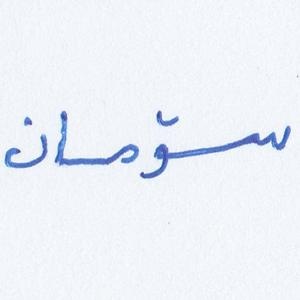 سۆسان